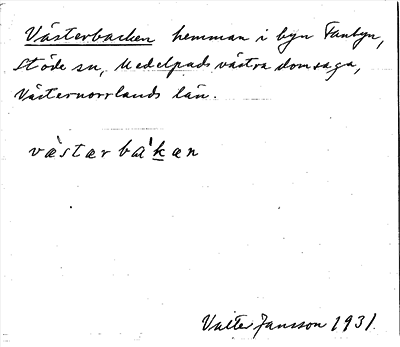 Västerbacken hemman i byn Fanbyn,
Stöde sn, Medelpads västra domsaga,
Västernorrlands län.
væ̀stærbákæn
Valter Jansson 1931.